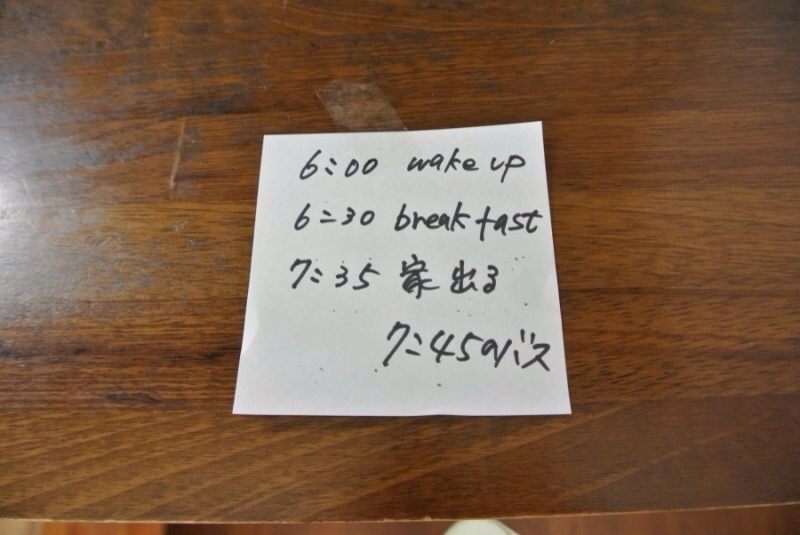 6:00 wake up
6:30 breakfast
7:35 家出る
7:45のバス